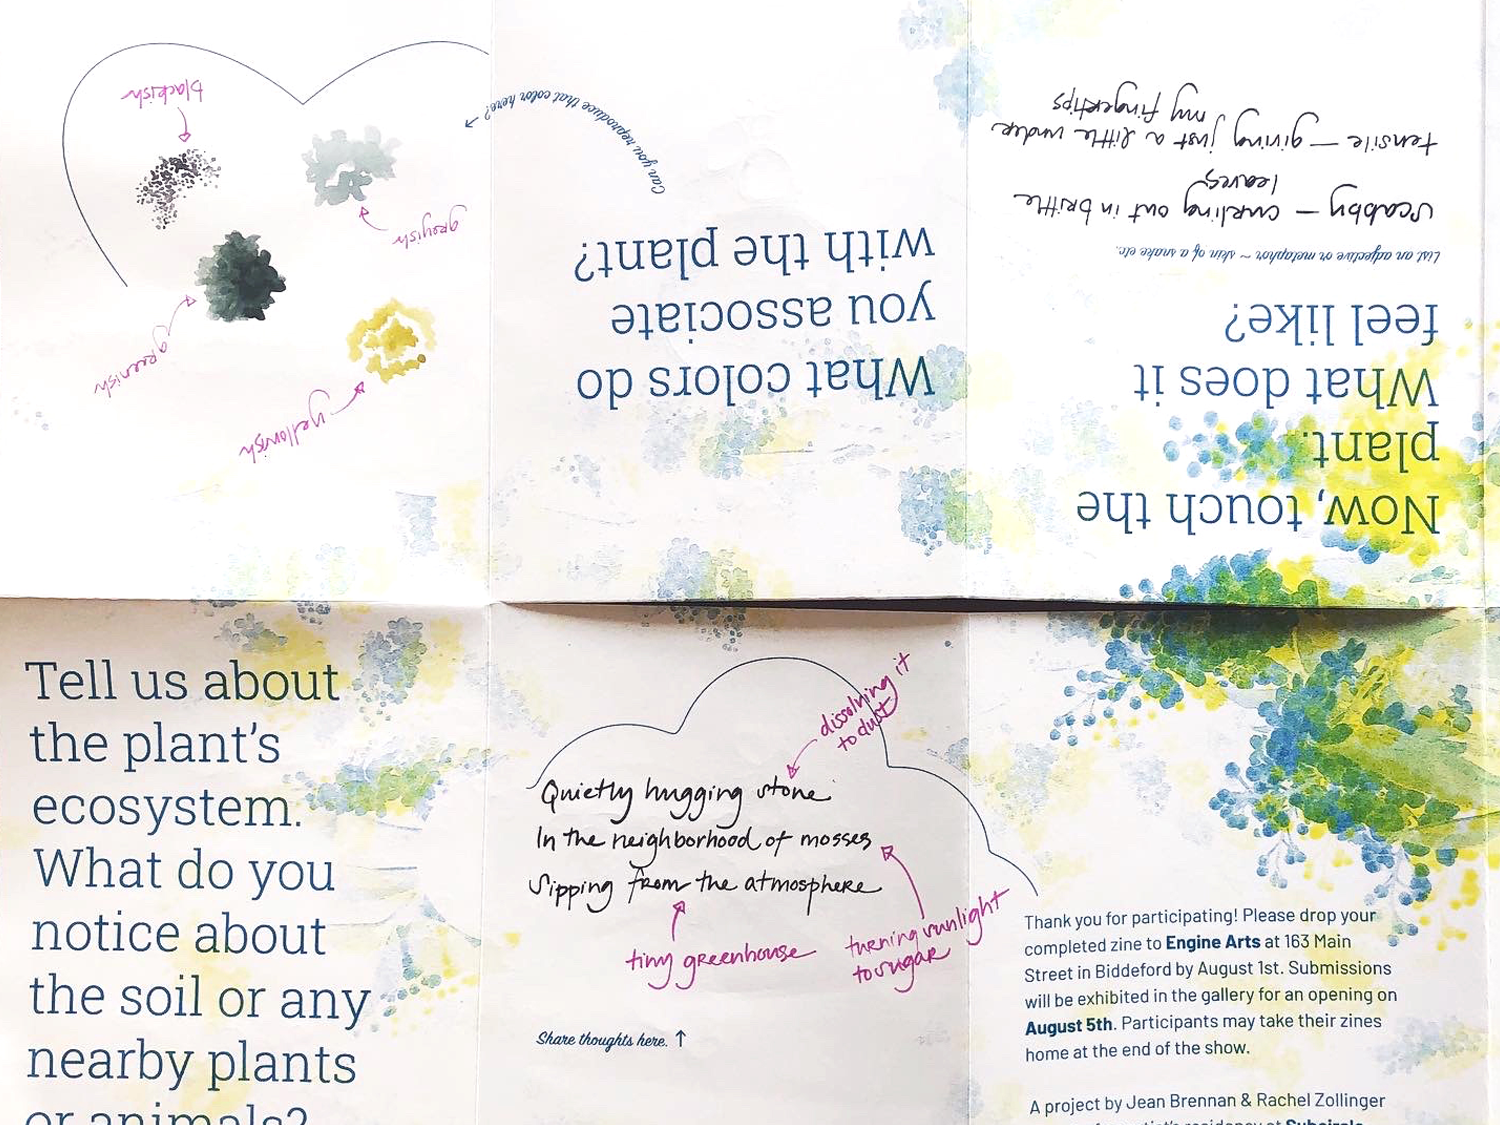 blackish
greyish
greenish
yellowish
Can you reproduce that color here? →
What colors do
you associate
with the plant?
Now, touch the
plant.
What does it
feel like?
List an adjective or metaphor ~ skin of a snake etc.
Scabby — curling out in brittle
leaves
tensile — giving just a little under
my fingertips
Tell us about
the plant's
ecosystem.
What do you
notice about
the soil or any
nearby plants
or animals?
dissolving it
to dust
Quietly hugging stone
In the neighborhood of mosses
Sipping from the atmosphere
tiny greenhouse
turning sunlight
to sugar
Share thoughts here. ↑
Thank you for participating! Please drop your
completed zine to Engine Arts at 163 Main
Street in Biddeford by August 1st. Submissions
will be exhibited in the gallery for an opening on
August 5th. Participants may take their zines
home at the end of the show.
A project by Jean Brennan & Rachel Zollinger
artist's residency at